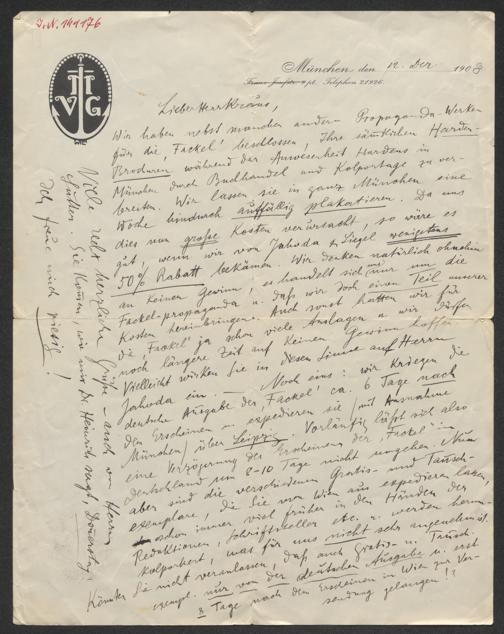 I.N. 141176
VHG
München, den 12. Dez. 1908
Franz Josefstr. 9 pt. Telephon 21926.
Lieber Herr Kraus,
Wir haben nebst manchen andern Propaganda-Werken
für die „Fackel“ beschlossen, Ihre sämtlichen Harden-
Brochuren während der Anwesenheit Hardens in
München durch Buchhandel und Kolportage zu ver-
breiten. Wir lassen sie in ganz München eine
Woche hindurch auffällig plakatieren. Da uns
dies nun große Kosten verursacht, so wäre es
gut, wenn wir von Jahoda & Siegel wenigstens
50% Rabatt bekämen. Wir denken natürlich ohnehin
an keinen Gewinn, es handelt sich nur um die
Fackel-propaganda u. daß wir doch einen Teil unserer
Kosten hereinbringen. Auch sonst hatten wir für
die „Fackel“ ja schon viele Auslagen u. wir dürfen
noch längere Zeit auf keinen Gewinn hoffen
Vielleicht wirken Sie in diesem Sinne auf Herrn
Jahoda ein. — Noch eins: wir kriegen die
deutsche Ausgabe der „Fackel“ ca. 6 Tage nach
dem Erscheinen u. expedieren sie (mit Ausnahme
München) über Leipzig. Vorläufig läßt sich also
eine Verzögerung des Erscheinens der „Fackel“ in
Deutschland um 8-10 Tage nicht umgehen. Nun
aber sind die verschiedenen Gratis- und Tausch-
exemplare, die Sie von Wien aus expedieren lassen,
schon immer viel früher in den Händen der
Redaktionen, Schriftsteller etc. u. werden herum-
kolportiert, was für uns nicht sehr angenehm ist.
Könnten Sie nicht veranlassen, daß auch Gratis- u. Tausch-
exempl. nur von der deutschen Ausgabe u. erst
8 Tage nach dem Erscheinen in Wien zur Ver-
sendung gelangen!?
Viele recht herzliche Grüße – auch von Herrn
Sie kommen, wie mir Dr. Heinrich sagt, Donnerstag.
Ich freue mich riesig!